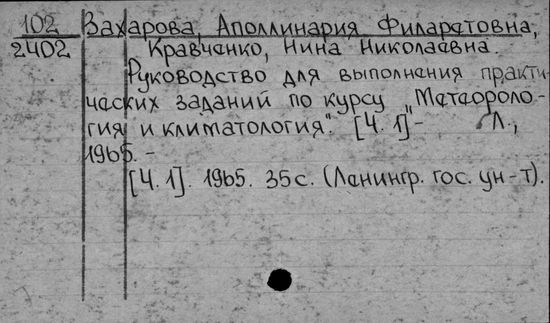 102 Захарова, Аполлинария Филаретовна,
2402 Кравченко, Нина Николаевна.
Руководство для выполнения практи-
ческих заданий по курсу "Метеороло-
гия и климатология". [Ч. 1] - Л.,
1965. -
[Ч. 1]. 1965. 35 с. (Ленингр. гос. ун-т).